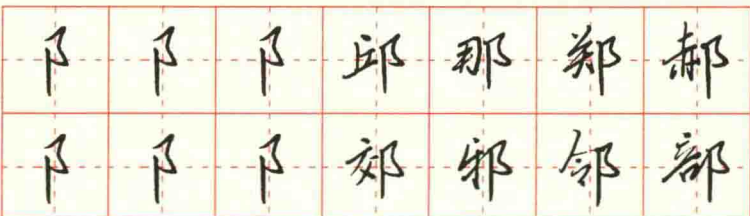 阝阝阝邱那郑郝
阝阝阝郊邪邻部